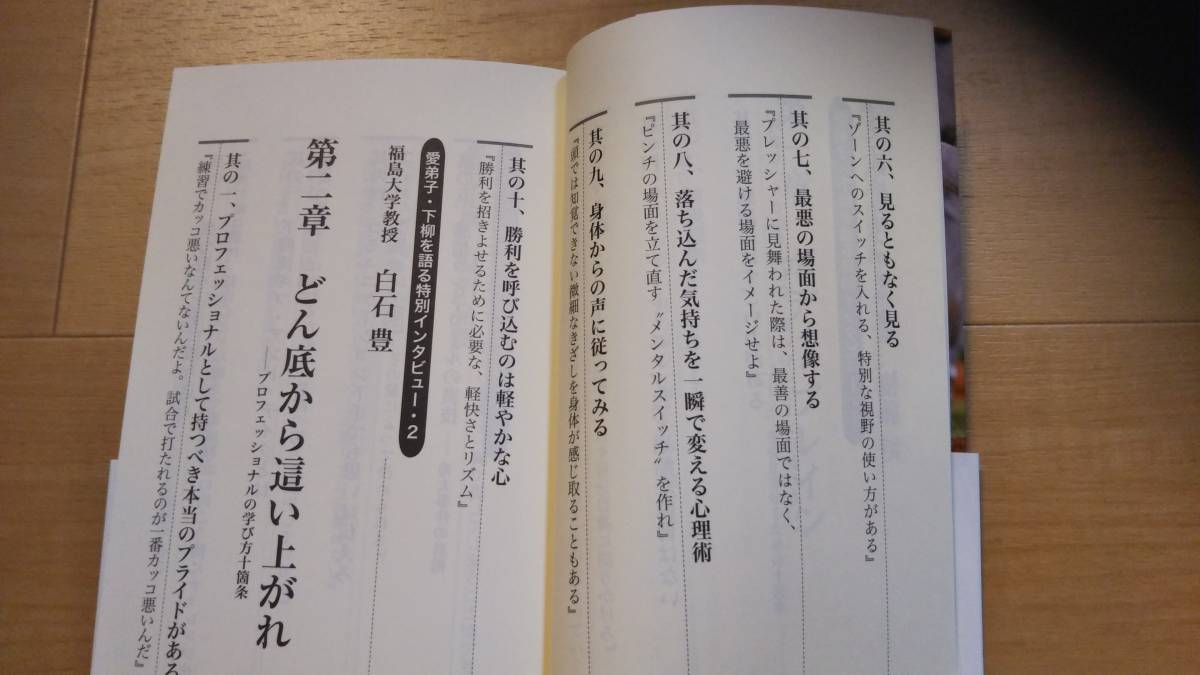 其の六、見るともなく見る
『ゾーンへのスイッチを入れる、特別な視野の使い方がある』
其の七、最悪の場面から想像する
『プレッシャーに見舞われた際は、最善の場面ではなく、
最悪を避ける場面をイメージせよ』
其の八、落ち込んだ気持ちを一瞬で変える心理術
『ピンチの場面を立て直す〝メンタルスイッチ〟を作れ』
其の九、身体からの声に従ってみる
『頭では知覚できない微細なきざしを身体が感じ取ることもある』
其の十、勝利を呼び込むのは軽やかな心
『勝利を招きよせるために必要な、軽快さとリズム』
愛弟子・下柳を語る特別インタビュー・2
福島大学教授 白石 豊
第二章 どん底から這い上がれ
──プロフェッショナルの学び方十箇条
其の一、プロフェッショナルとして持つべき本当のプライドがある
『練習でカッコ悪いなんてないんだよ。試合で打たれるのが一番カッコ悪いんだ』